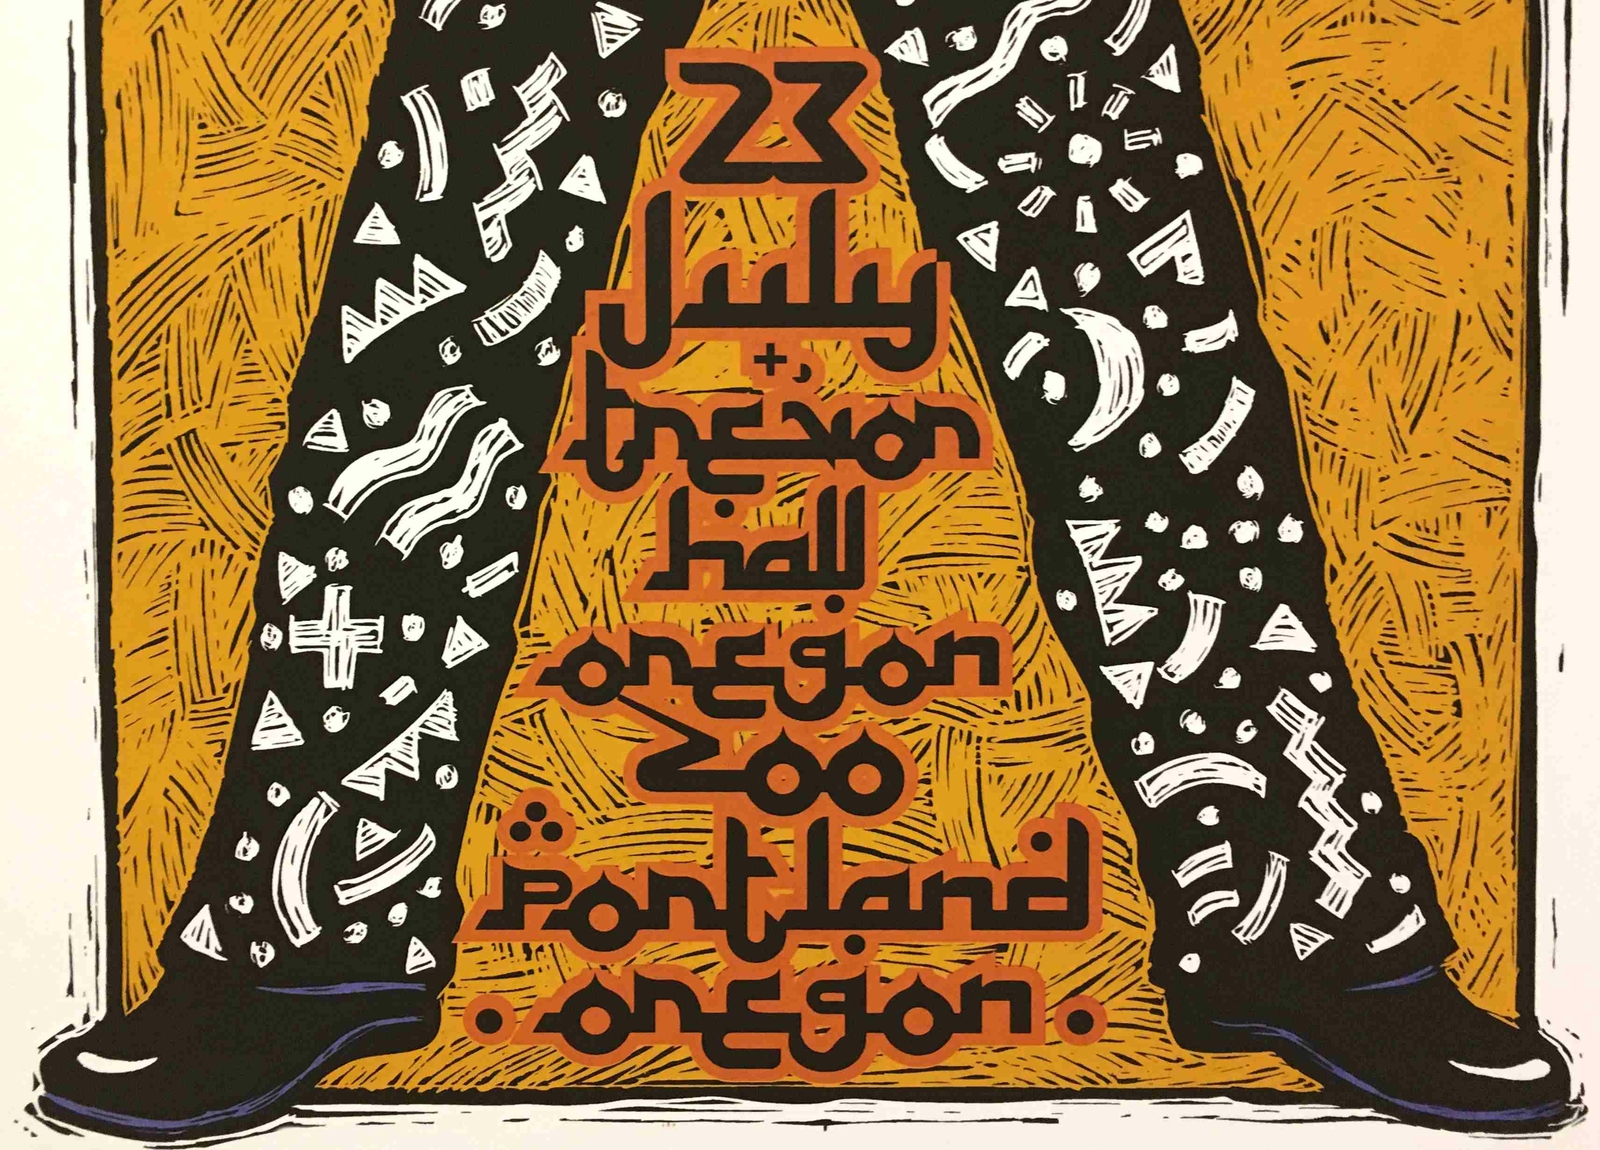 23
July
+
trevor
hall
oregon
zoo
portland
oregon